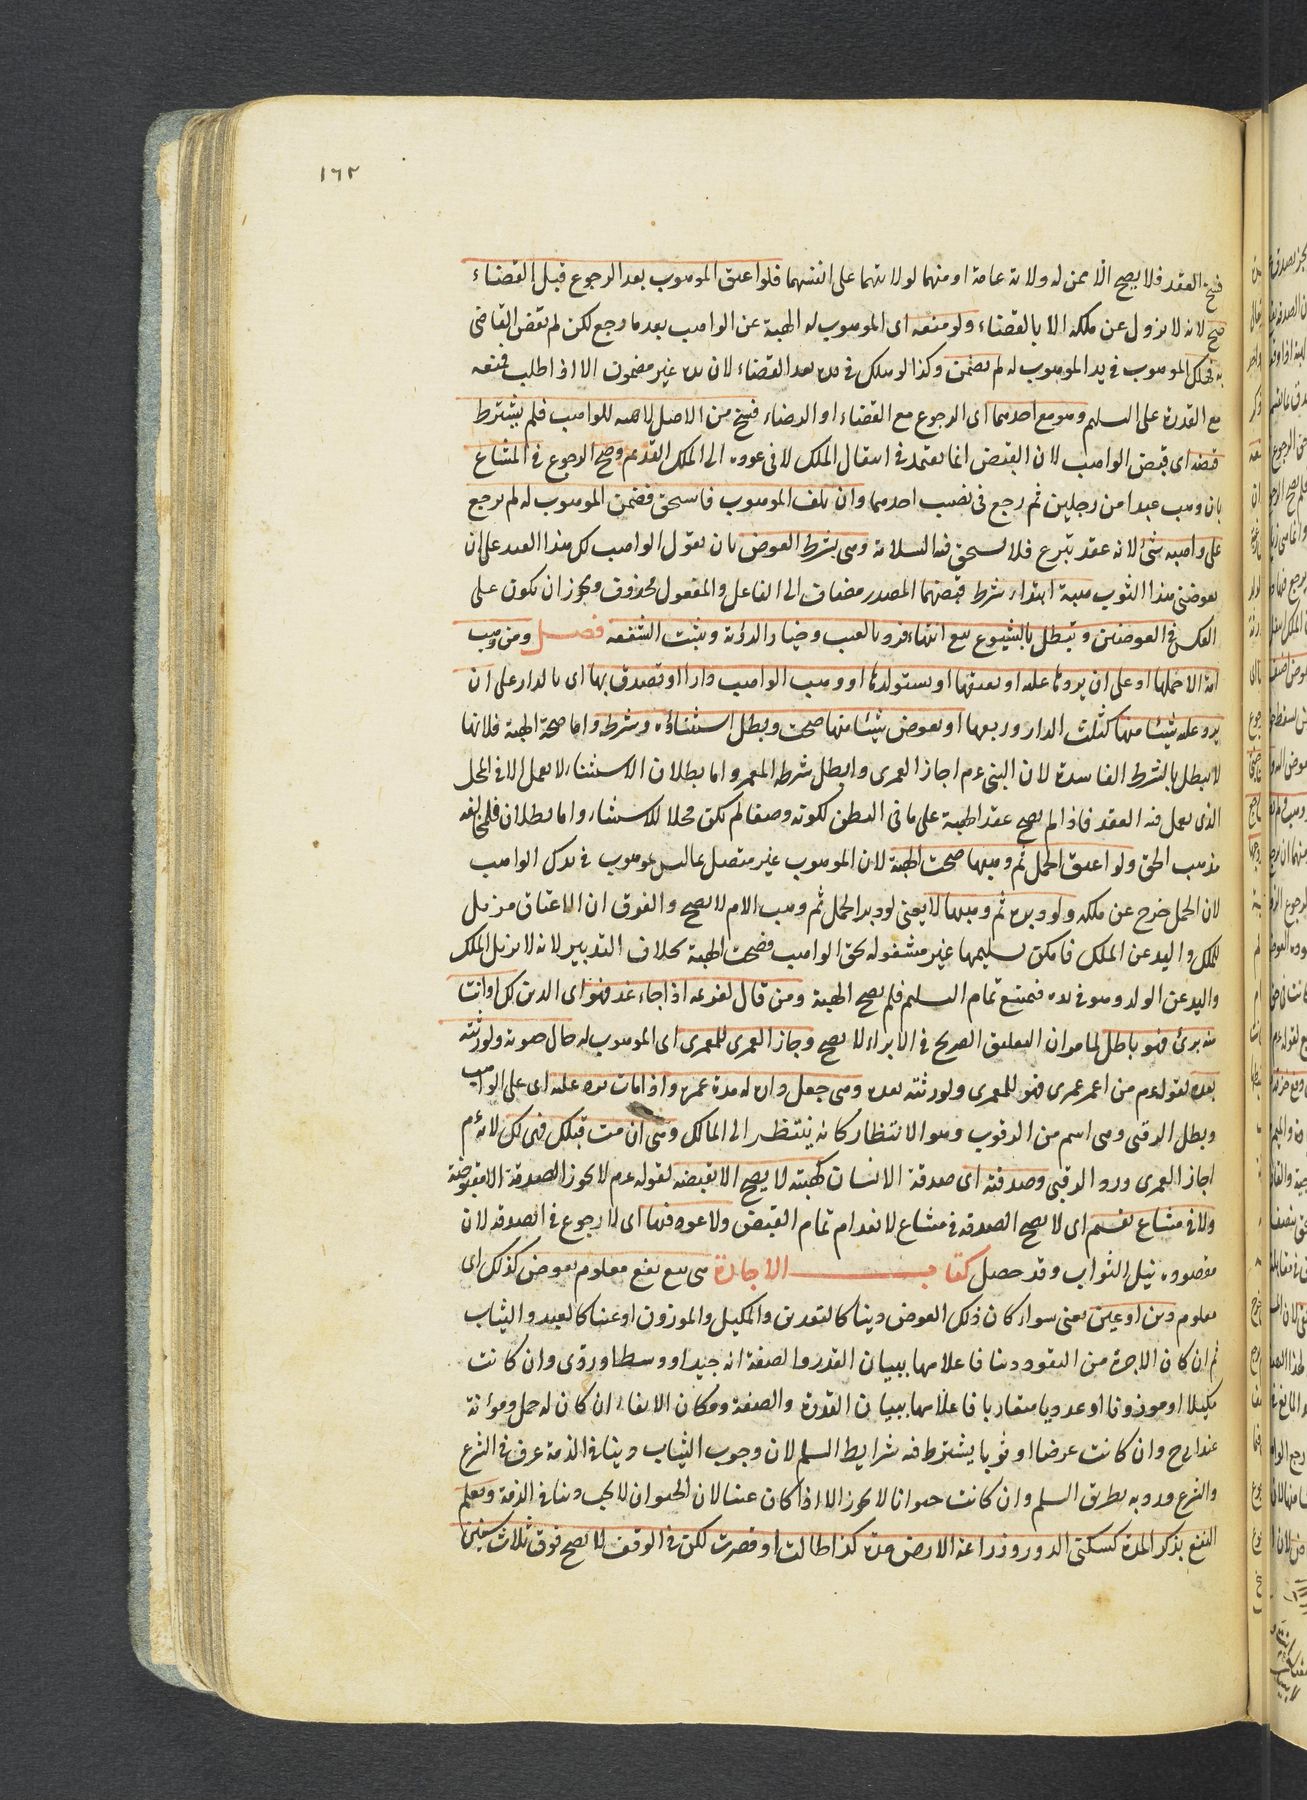 ١٦٢
فسخ العقد فلا يصح الا ممن له ولاية عامة او منهما لولايتهما على انفسهما فلو اعتق الموهوب بعد الرجوع قبل القضاء
صح لانه لا يزول عن ملكه الا بالقضاء ولو منعه اى الموهوب له الهبة عن الواهب بعد ما رجع لكن لم يقض القاضى
به فهلك الموهوب فى يد الموهوب له لم يضمن وكذا لو هلك فى يده بعد القضاء لان يده غير مضمون الا اذا طلب فمنعه
مع القدرة على التسليم وهو مع احدهما اى الرجوع مع القضاء او الرضاء فسخ من الاصل لا هبة للواهب فلم يشترط
قبضه اى قبض الواهب لان القبض انما يعتمد فى انتقال الملك لا فى عوده الى الملك القديم وصح الرجوع فى المشاع
بان وهب عبدا من رجلين ثم رجع فى نصيب احدهما وان تلف الموهوب فاستحق فضمن الموهوب له لم يرجع
على واهبه بشئ لانه عقد تبرع فلا يستحق فيه السلامة وهى بشرط العوض بان يقول الواهب لك هذا العبد على ان
تعوضنى هذا الثوب هبة ابتداء بشرط قبضهما المصدر مضاف الى الفاعل والمفعول محذوف ويجوز ان يكون على
العكس فى العوضين وتبطل بالشيوع بيع انتهاء فترد بالعيب وخيار الرؤية وتثبت الشفعة فصل ومن وهب
امة الا حملها او على ان يردها عليه او يعتقها او يستولدها او وهب الواهب دارا او تصدق بها اى بالدار على ان
يرد عليه شيئا منها كثلث الدار وربعها او يعوض شيئا منها صحت وبطل استثناؤه وشرطه واما صحة الهبة فلانها
لا تبطل بالشرط الفاسدة لان النبى عم اجاز العمرى وابطل شرطه المعمر واما بطلان الاستثناء لا يعمل الا فى المحل
الذى يعمل فيه العقد فاذا لم يصح عقد الهبة على ما فى البطن لكونه وصفا لم يكن محلا للاستثناء واما بطلان فلمخالفته
مذهب الحق ولو اعتق الحمل ثم وهبها صحت الهبة لان الموهوب غير متصل بما ليس بموهوب فى ملك الواهب
لان الحمل خرج عن ملكه ولو دبره ثم وهبها لا يعنى لو دبر الحمل ثم وهب الام لا يصح والفرق ان الاعتاق مزيل
للملك واليد عن الملك فامكن تسليمها غير مشغولة بحق الواهب فصحت الهبة بخلاف التدبير لانه لا يزيل الملك
واليد عن الولد وهو فى يده فيمنع تمام التسليم فلم يصح الهبة ومن قال لغريمه اذا جاء غد فهو اى الدين لك او انت
منه برئ فهو باطل لما مر ان التعليق الصريح فى الابراء لا يصح وجاز العمرى للمعمرى اى الموهوب له حال حيوته ولورثته
بعده لقوله عم من اعمر عمرى فهو للمعمرى ولورثته بعده وهى جعل داره له مدة عمره واذا مات يرد عليه اى على الواهب
وبطل الرقبى وهى اسم من الرقوب وهو الانتظار كانه ينتظر الى المالك وهى ان مت قبلك فهى لك لانه عم
اجاز العمرى ورد الرقبى وصدقته اى صدقة الانسان كهبته لا يصح الا بقبضه لقوله عم لا يجوز الصدقة الا مقبوضة
ولا فى مشاع يقسم اى لا يصح الصدقة فى مشاع لانعدام تمام القبض ولا عود فيها اى لا رجوع فى الصدقة لان
مقصوده نيل الثواب وقد حصل كتاب الاجارة هى بيع نفع معلوم بعوض كذلك اى
معلوم دين او عين يعنى سواء كان ذلك العوض دينا كالنقدين والمكيل والموزون او عينا كالعبد والثياب
ثم ان كان الاجرة من النقود دينا فاعلامها ببيان القدر والصفة انه جيد او وسط او ردى وان كانت
مكيلا او موزونا او عدديا متقاربا فاعلامها ببيان القدرة والصفة ومكان الايفاء ان كان له حمل ومؤنة
عند ابى ح وان كانت عرضا او ثوبا يشترط فيه شرايط السلم لان وجوب الثياب دينا فى الذمة عرف فى الشرع
والشرع ورد به بطريق السلم وان كانت حيوانا لا يجوز الا اذا كان عينا لان الحيوان لا يجب دينا فى الذمة ويعلم
النفع بذكر المدة كسكنى الدور وزراعة الارض مدة كذا طالت او قصرت لكن فى الوقف لا يصح فوق ثلاث سنين